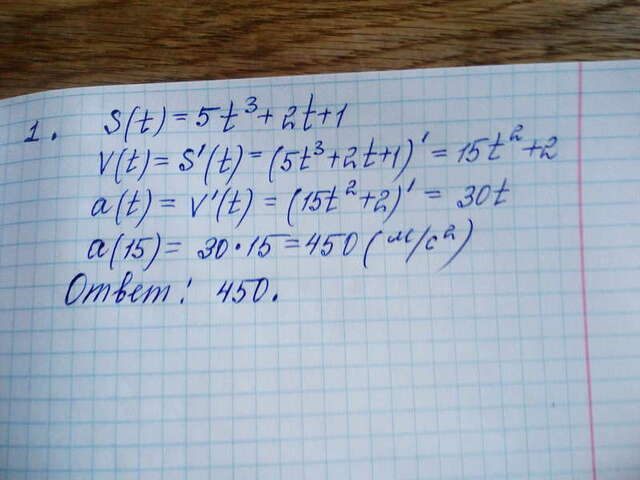 1. S(t) = 5t³ + 2t + 1
V(t) = S'(t) = (5t³ + 2t + 1)' = 15t² + 2
a(t) = V'(t) = (15t² + 2)' = 30t
a(15) = 30 · 15 = 450 (м/с²)
Ответ: 450.